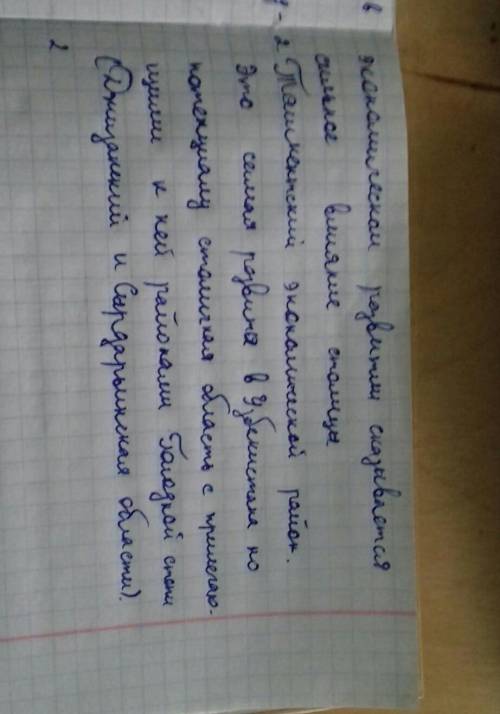 в
экономическом развитии сказывается
сильное влияние столицы
- 2 Ташкентский экономической район.
Это самая развита в Узбекистана по
потенциалу столичная область с прилегаю-
щими к ней районами Голодной степи
(Джизакский и Сырдарьинская области).
2